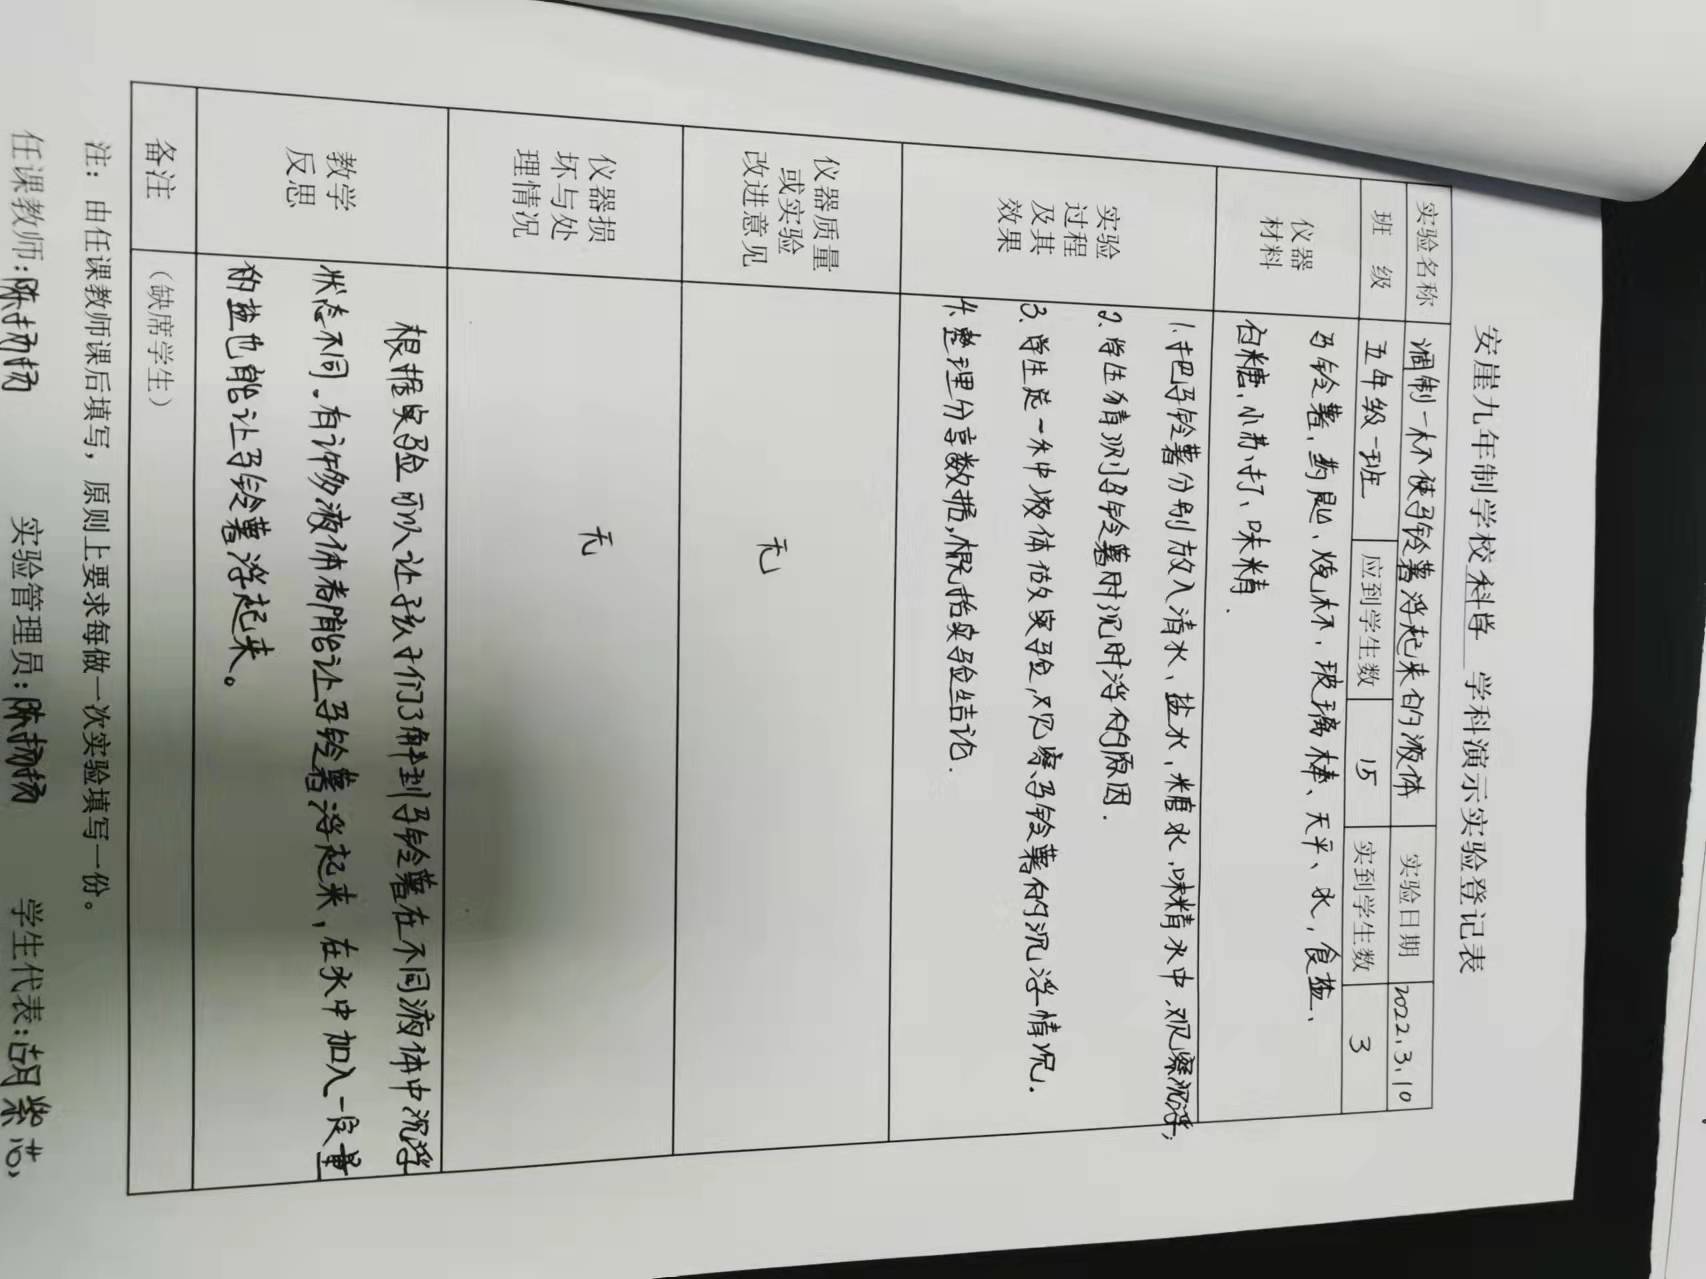 安崖九年制学校 科学 学科演示实验登记表
实验名称 调制一杯使马铃薯浮起来的液体 实验日期 2022.3.10
班 级 五年级一班 应到学生数 15 实到学生数 3
仪器
材料
马铃薯、药匙、烧杯、玻璃棒、天平、水、食盐、
白糖、小苏打、味精.
实验
过程
及其
效果
1.把马铃薯分别放入清水、盐水、糖水、味精水中、观察沉浮;
2.学生猜测马铃薯时沉时浮的原因.
3.学生选一种液体做实验,观察马铃薯的沉浮情况.
4.整理分享数据,根据实验结论.
仪器质量
或实验
改进意见
无
仪器损
坏与处
理情况
无
教学
反思
根据实验可以让孩子们了解到马铃薯在不同液体中沉浮
状态不同。有许多液体都能让马铃薯浮起来,在水中加入一定量
的盐也能让马铃薯浮起来。
备注
(缺席学生)
注:由任课教师课后填写,原则上要求每做一次实验填写一份。
任课教师:陈扬扬 实验管理员:陈扬扬 学生代表:胡紫芯